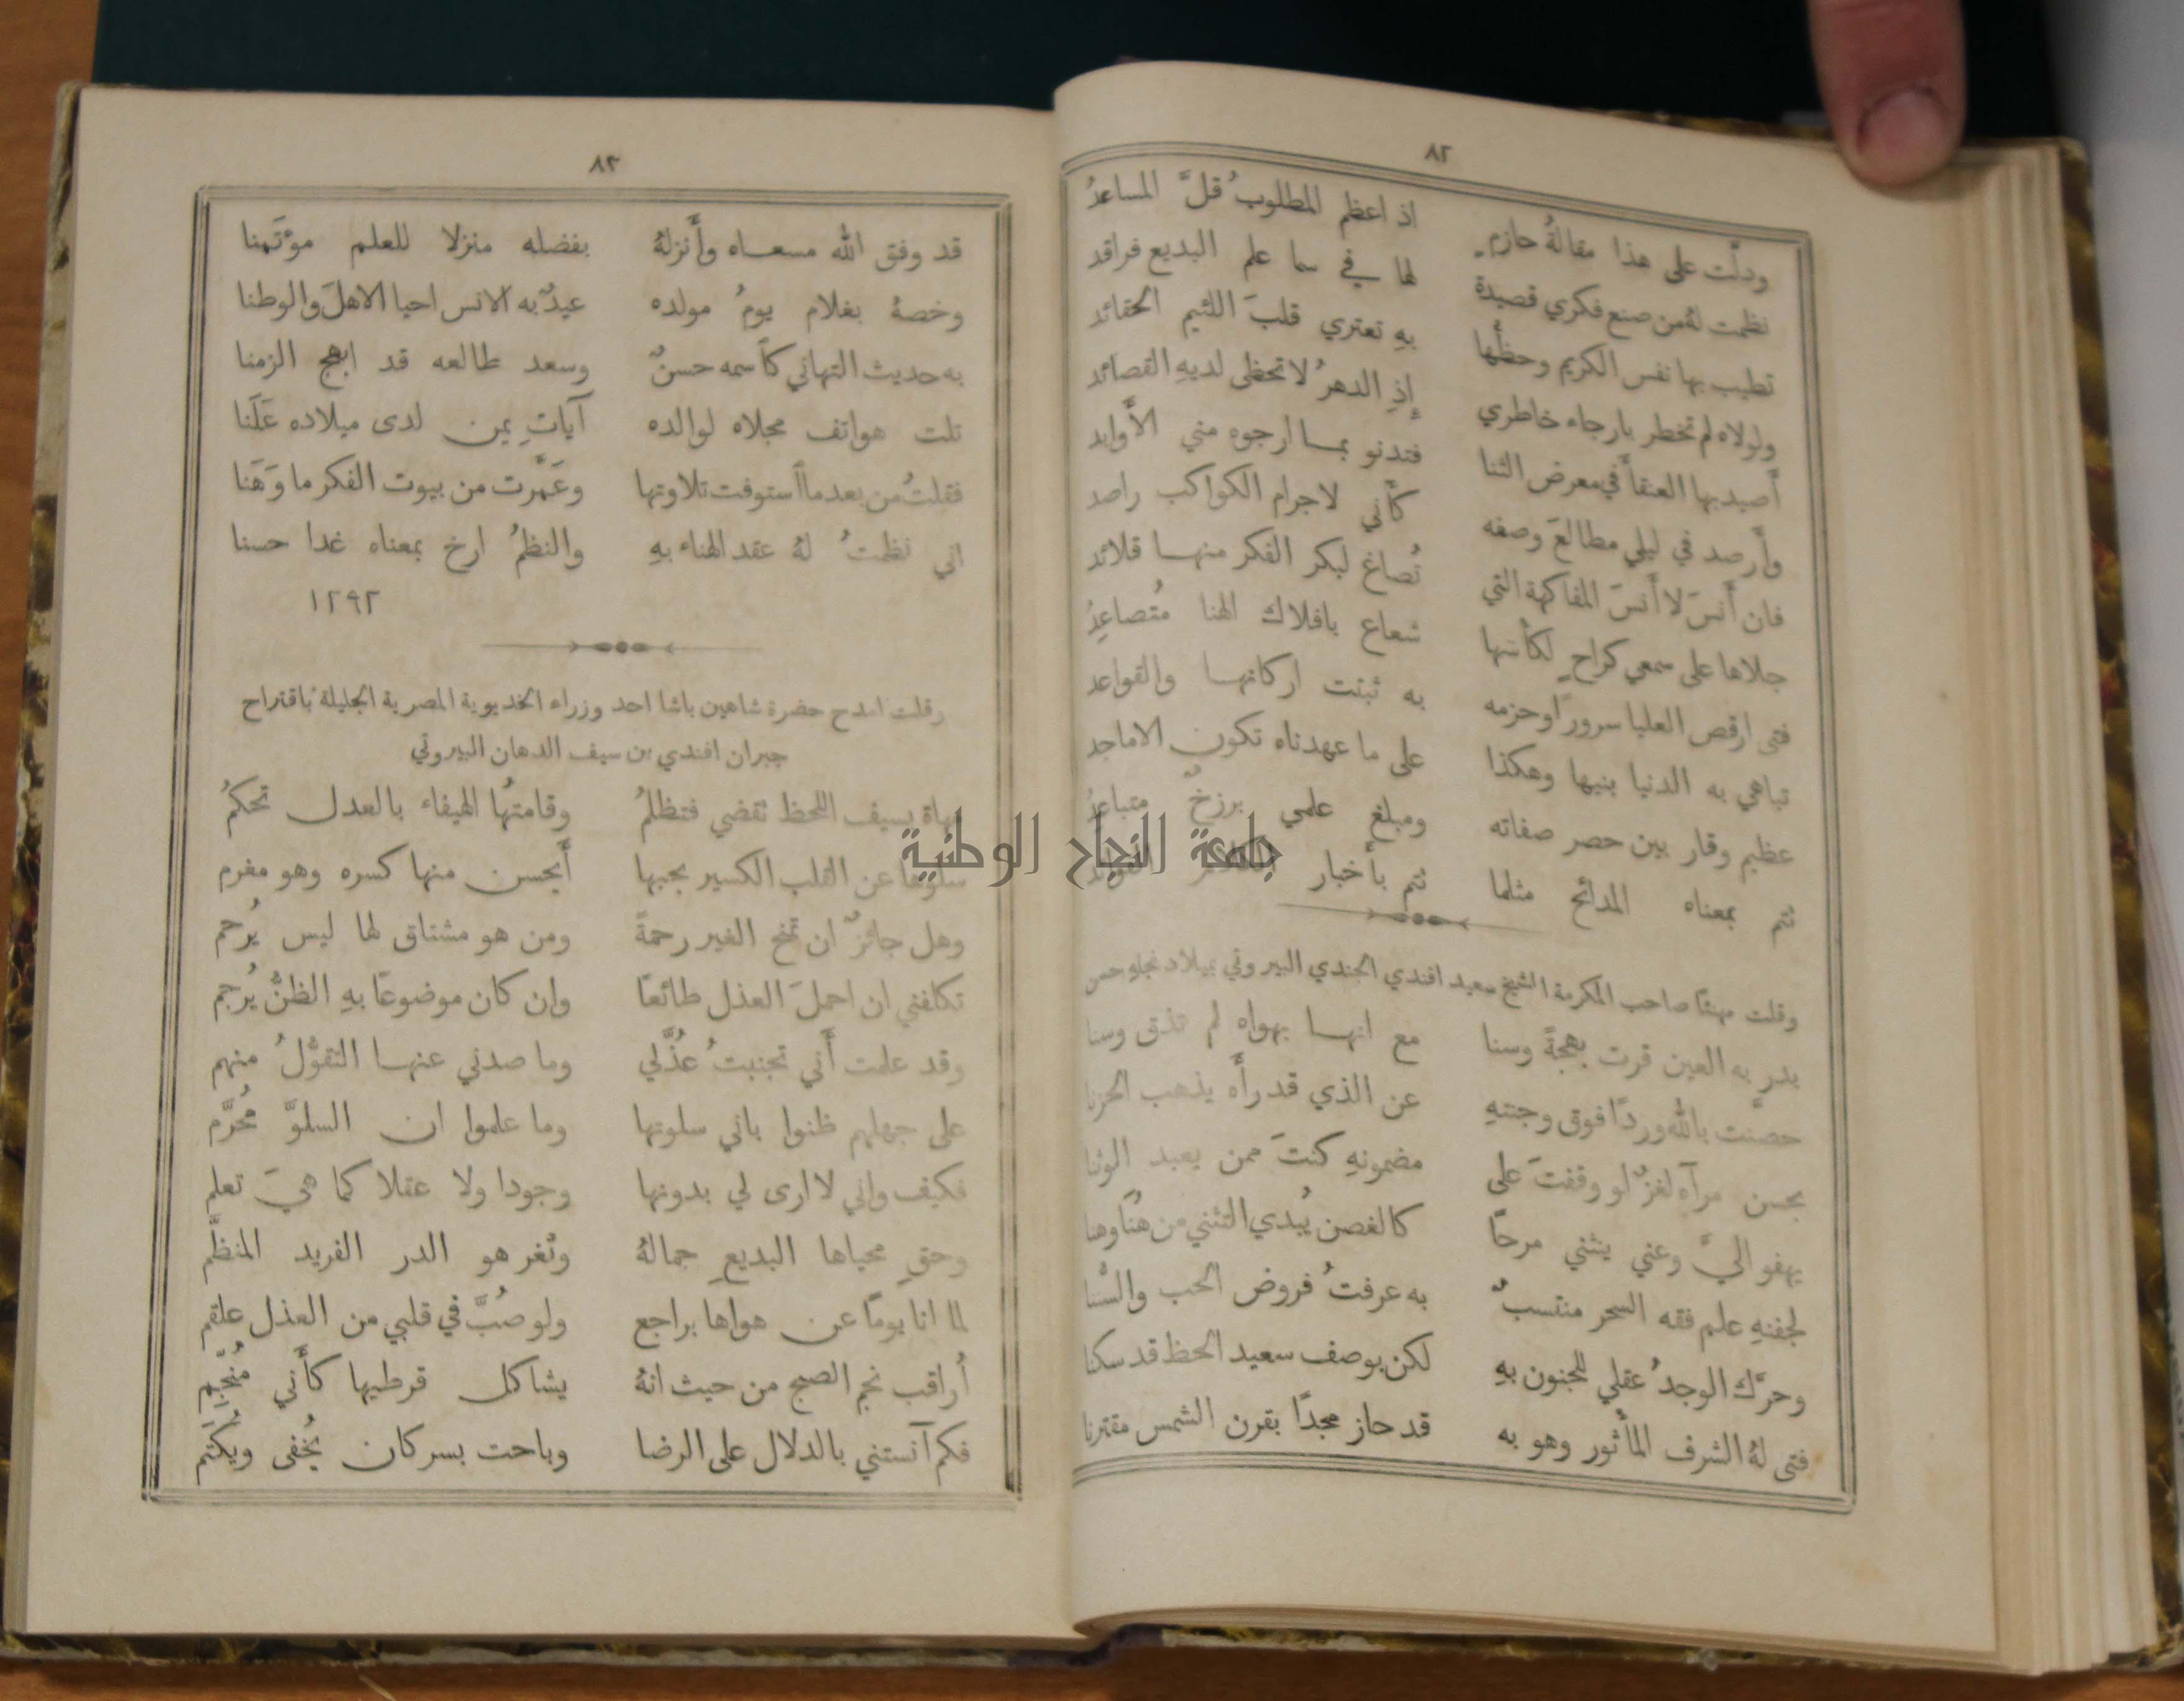 ٨٢
ودلَّت على هذا مقالةُ حازمٍ اذ اعظم المطلوبُ قلَّ المساعدُ
نظمت لهُ من صنع فكري قصيدة لها في سما علم البديع فراقد
تطيب بها نفس الكريم وحظُّها بهِ تعتري قلبَ اللئيم الحقائد
ولولاه لم تخطر بارجاء خاطري إِذِ الدهرُ لا تحظى لديهِ القصائد
أَصيد بها العنقاَ في معرض الثنا فتدنو بمــا ارجوه مني الأَوابد
وأَرصد في ليلي مطالعَ وصفه كأَني لاجرام الكواكب راصد
فان أَنسَ لا أَنسَ المفاكهة التي تُصاغ لبكر الفكر منهــا قلائد
جلاها على سمعي كراحٍ لكأسها شعاع بافلاك الهنا مُتصاعِدُ
فتى ارقص العليا سرورًا وحزمه به ثبتت اركانهــا والقواعد
تباهي به الدنيا بنيها وهكذا على ما عهدناه تكون الاماجد
عظيم وقار بين حصر صفاته ومبلغ علمي برزخٌ متباعدُ
تتم بمعناه المدائح مثلما تتم بأَخبار
وقلت مهنئا صاحب المكرمة الشيخ سعيد افندي الجندي البيروتي بميلاد نجلهِ حسن
بدر به العين قرت بهجةً وسنا مع انهــا بهواه لم تذق وسنا
حصَّنت بالله وردًا فوق وجنتهِ عن الذي قد رأَه يذهب الحزنا
بحسن مرآه لغزٌ لو وقفتَ على مضمونهِ كنتَ ممن يعبد الوثنا
يهفو اليَّ وعني ينثني مرحًا كالغصن يُبدي التثني من هُنا وهنا
لجفنهِ علم فقه السحر منتسبٌ به عرفتُ فروض الحب والسُننا
وحرَّك الوجدُ عقلي للجنون بهِ لكن بوصف سعيد الحظ قد سكنا
فتى لهُ الشرف المأثور وهو به قد حاز مجدًا بقرن الشمس مقترنا
٨٣
قد وفق الله مسعــاه وأَنزلهُ بفضله منزلا للعلم مؤتَمنا
وخصهُ بغلام يومُ مولده عيدٌ به الانس احيا الاهلَ والوطنا
به حديث التهاني كاَسمه حسنٌ وسعد طالعه قد ابهج الزمنا
تلت هواتف مجلاه لوالده آياتِ يمن لدى ميلاده عَلَنا
فقلتُ من بعد ما اَستوفت تلاوتها وعَمَّرت من بيوت الفكر ما وَهَنا
اني نظمتُ لهُ عقد الهناء بهِ والنظمُ ارخ بمعناه غدا حسنا
١٢٩٢
وقلت امدح حضرة شاهين باشا احد وزراء الخديوية المصرية الجليلة باقتراح
جبران افندي بن سيف الدهان البيروتي
مهاة بسيف اللحظ تقضي فتظلمُ وقامتُها الهيفاء بالعدل تحكمُ
سلوها عن القلب الكسير بجبها أَيحسن منها كسره وهو مغرم
وهل جائزٌ ان تمنح الغير رحمةً ومن هو مشتاق لها ليس يُرحم
تكلفني ان احملَ العذل طائعًا وان كان موضوعًا بهِ الظنُّ يُرجم
وقد علمت أَني تجنبتُ عُذَّلي وما صدني عنهــا التقوُّلُ منهم
على جهلهم ظنوا باني سلوتها وما علموا ان السلوَّ مُحرَّم
فكيف واني لا ارى لي بدونها وجودا ولا عقلا كما هيَ تعلم
وحقِ محياها البديعِ جمالهُ وثغر هو الدر الفريد المنظَّم
لما انا يومًا عن هواها براجع ولو صُبَّ في قلبي من العذل علقم
أُراقب نجم الصبح من حيث انهُ يشاكل قرطيها كأَني مُنَجِّم
فكم آنستني بالدلال على الرضا وباحت بسر كان يُخفى ويُكتَم
جامعة النجاح الوطنية